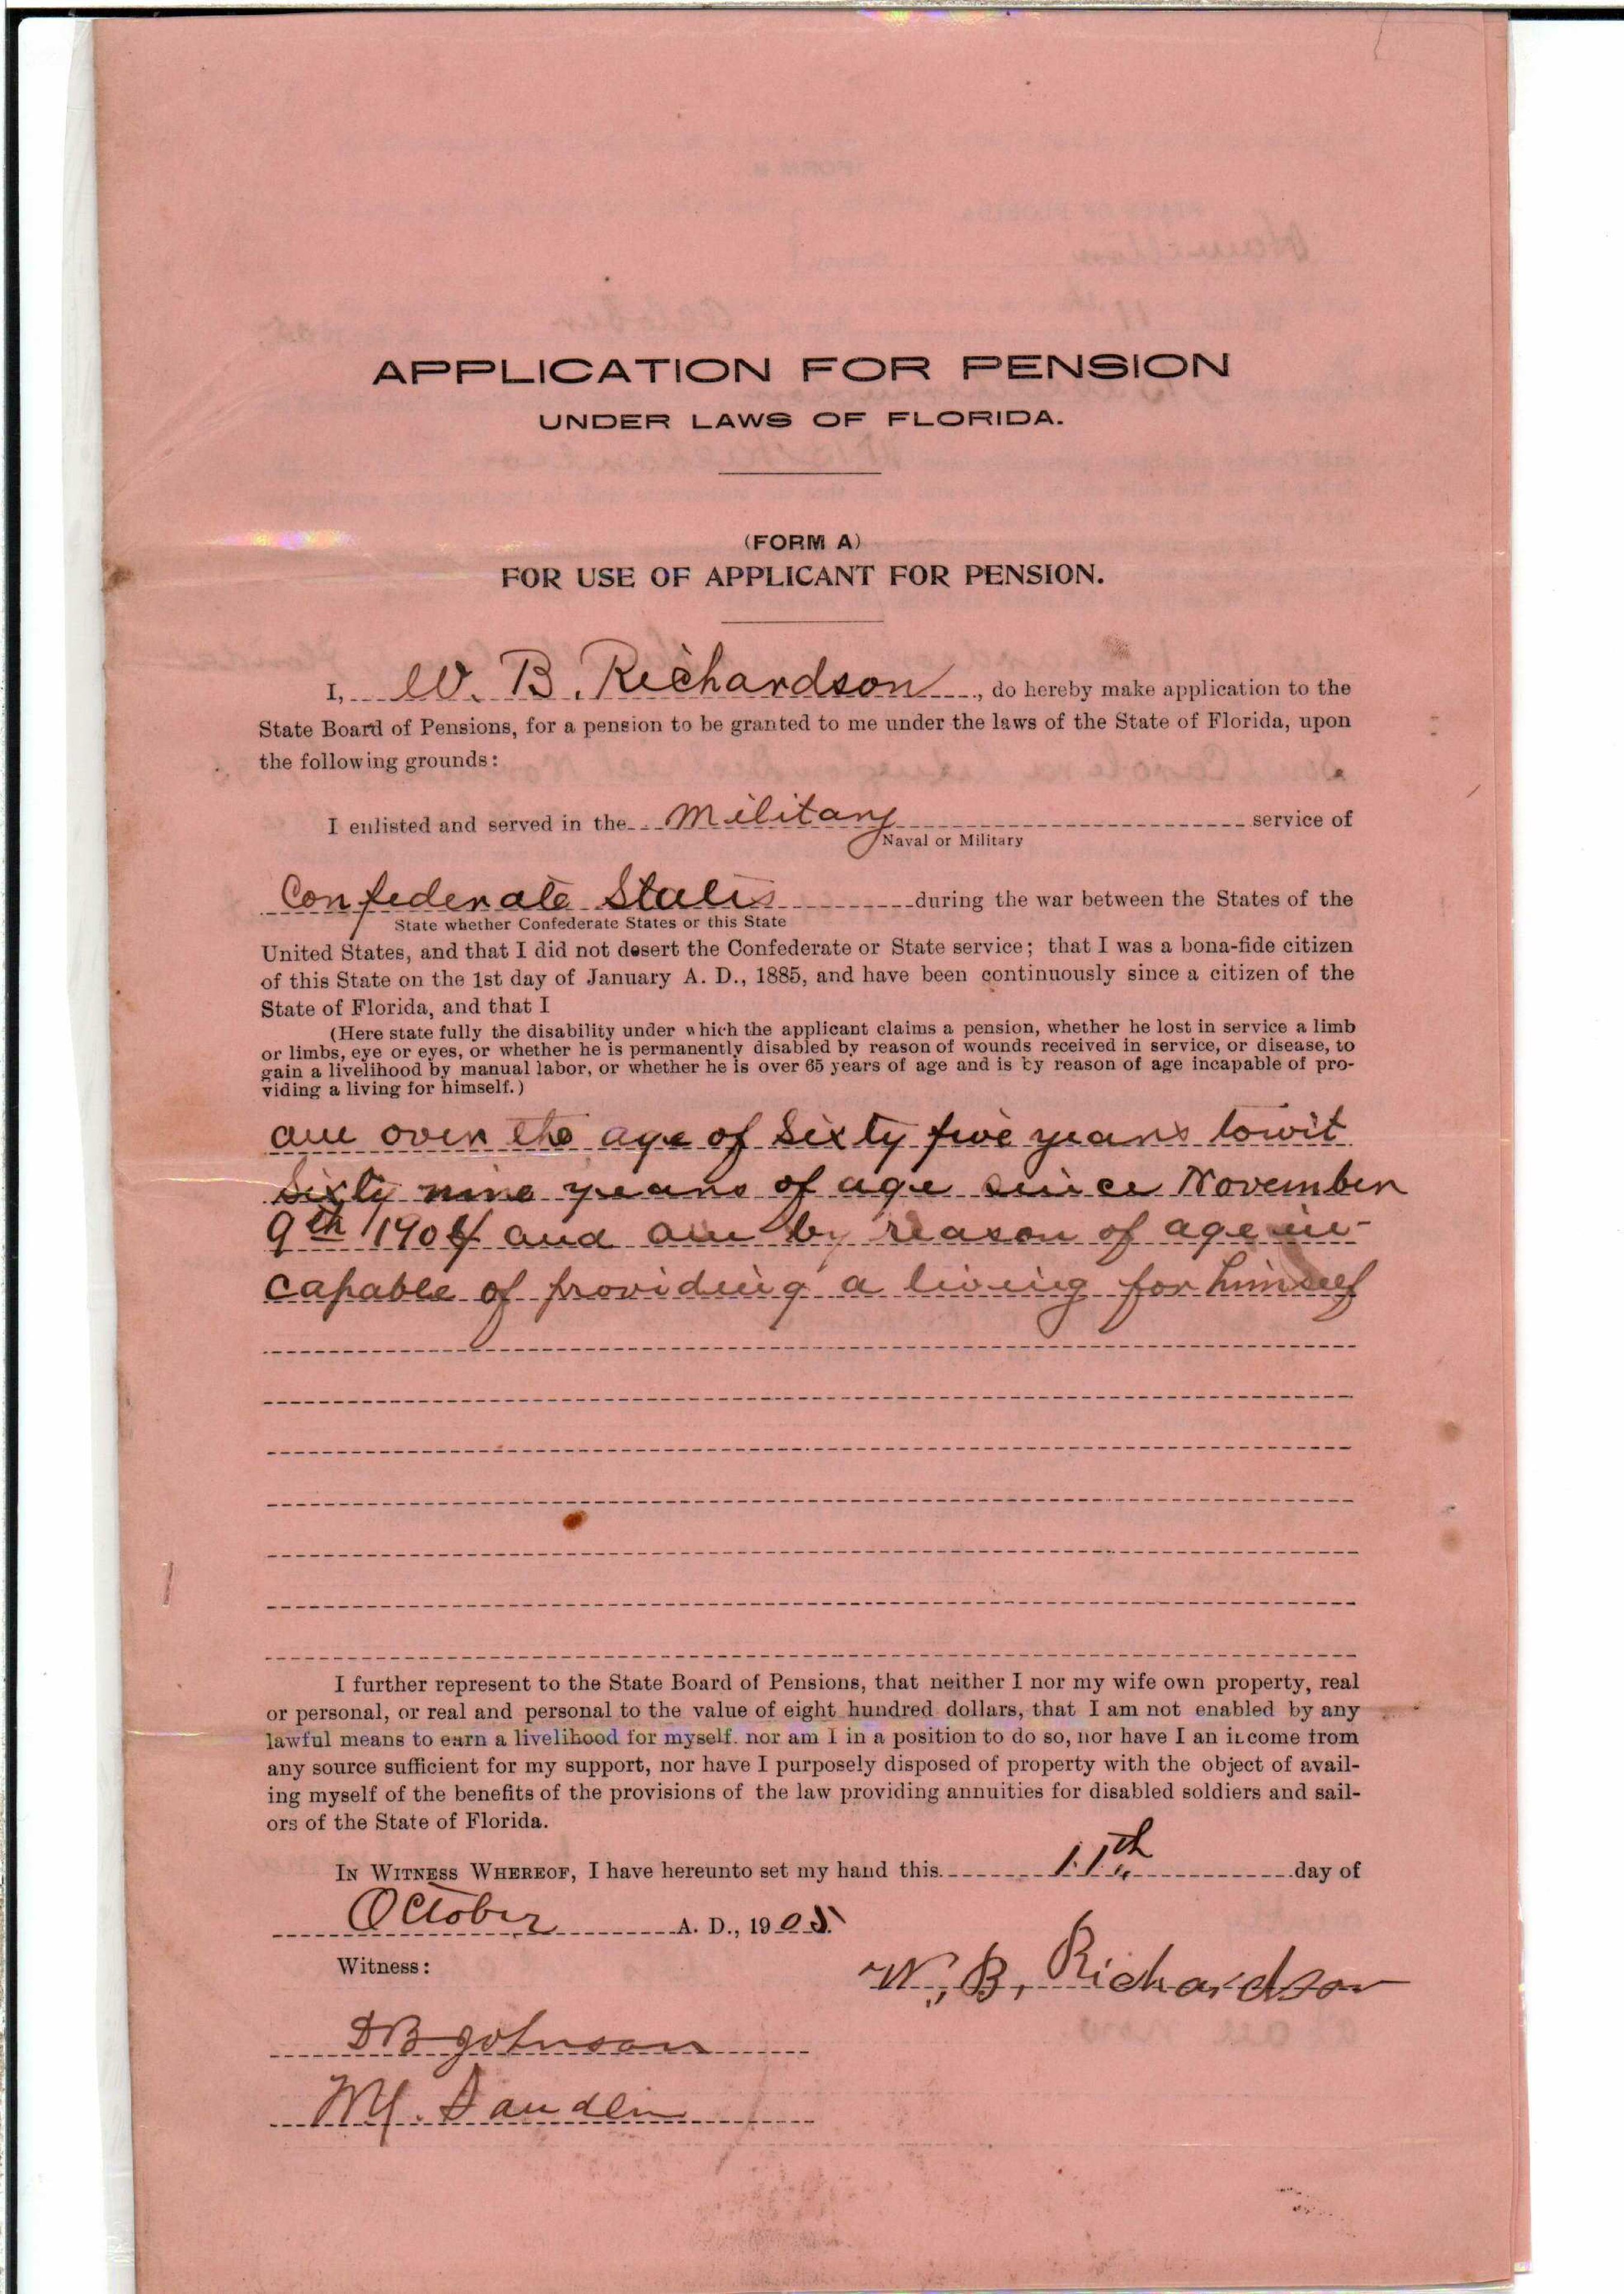 APPLICATION FOR PENSION
UNDER LAWS OF FLORIDA.
(FORM A)
FOR USE OF APPLICANT FOR PENSION.
I, W. B. Richardson, do hereby make application to the
State Board of Pensions, for a pension to be granted to me under the laws of the State of Florida, upon
the following grounds:
I enlisted and served in the Military service of
Naval or Military
Confederate States during the war between the States of the
State whether Confederate States or this State
United States, and that I did not desert the Confederate or State service; that I was a bona-fide citizen
of this State on the 1st day of January A. D., 1885, and have been continuously since a citizen of the
State of Florida, and that I
(Here state fully the disability under which the applicant claims a pension, whether he lost in service a limb
or limbs, eye or eyes, or whether he is permanently disabled by reason of wounds received in service, or disease, to
gain a livelihood by manual labor, or whether he is over 65 years of age and is by reason of age incapable of pro-
viding a living for himself.)
am over the age of Sixty five years towit
Sixty nine years of age since November
9th 1904 and am by reason of age in-
capable of providing a living for himself
I further represent to the State Board of Pensions, that neither I nor my wife own property, real
or personal, or real and personal to the value of eight hundred dollars, that I am not enabled by any
lawful means to earn a livelihood for myself. nor am I in a position to do so, nor have I an income from
any source sufficient for my support, nor have I purposely disposed of property with the object of avail-
ing myself of the benefits of the provisions of the law providing annuities for disabled soldiers and sail-
ors of the State of Florida.
IN WITNESS WHEREOF, I have hereunto set my hand this 11th day of
October A. D., 1905.
Witness:
W. B. Richardson
D B Johnson
Sandlin